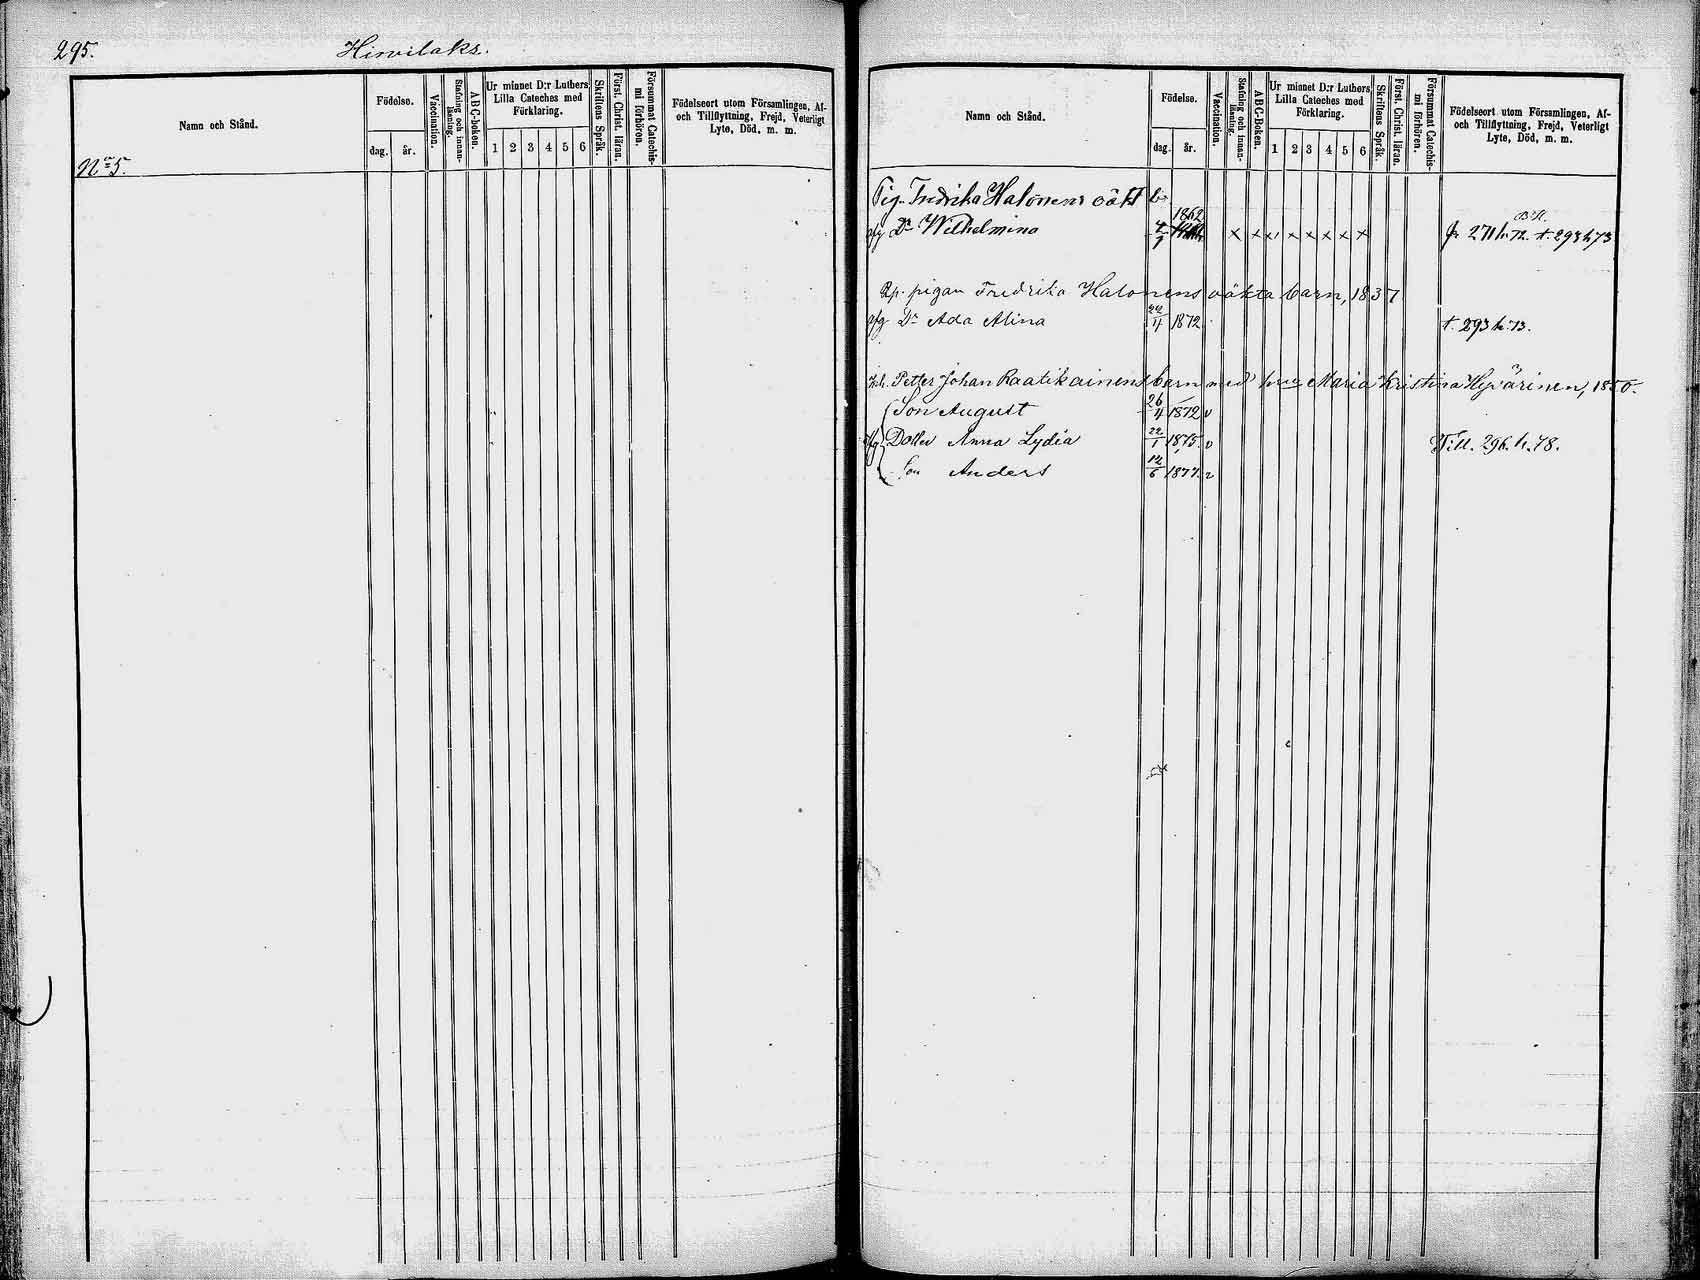 295.
Hirvilaks.
Namn och Stånd.
Födelse.
dag.
år.
Vaccination.
Stafning och innan-
läsning.
ABC-Boken.
Ur minnet D:r Luthers
Lilla Cateches med
Förklaring.
1 2 3 4 5 6
Skriftens Språk.
Först. Christ. läran.
Försummat Catechis-
mi förhören.
Födelseort utom Församlingen, Af-
och Tillflyttning, Frejd, Veterligt
Lyte, Död, m. m.
No 5.
Namn och Stånd.
Födelse.
dag.
år.
Vaccination.
Stafning och innan-
läsning.
ABC-Boken.
Ur minnet D:r Luthers
Lilla Cateches med
Förklaring.
1 2 3 4 5 6
Skriftens Språk.
Först. Christ. läran.
Försummat Catechis-
mi förhören.
Födelseort utom Församlingen, Af-
och Tillflyttning, Frejd, Veterligt
Lyte, Död, m. m.
Pig. Fredrika Halonens oäkt b:
1862
afg Dr Wilhelmina x x x x x x x x fr 271 h. 72. t. 293 h 73
pigan Fredrika Halonens oäkta barn, 1837
afg Dr Ada Alina 22/4 1872 t. 293 h. 73.
Petter Johan Raatikainens barn med hu Maria Kristina Hyvärinen, 1850.
Son August 26/4 1872 v
afg Dotter Anna Lydia 22/1 1875. v Till. 296. h. 78.
Son Anders 12/6 1877. v